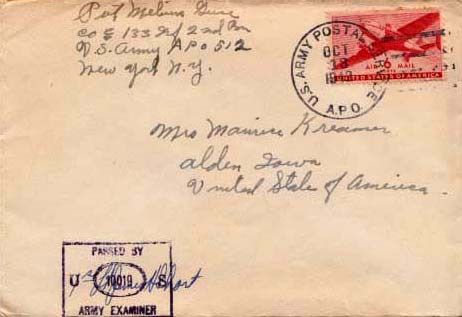 Pvt Melvin
Co E 133 Inf 2nd Bn
U.S. Army A.P.O 512
New York N.Y.
U.S. ARMY POSTAL SERVICE
OCT
A.P.O.
AIR MAIL
6
UNITED STATES OF AMERICA
Mrs Maurice Kreamer
Alden Iowa
United State of America.
PASSED BY
U 10019 S
ARMY EXAMINER